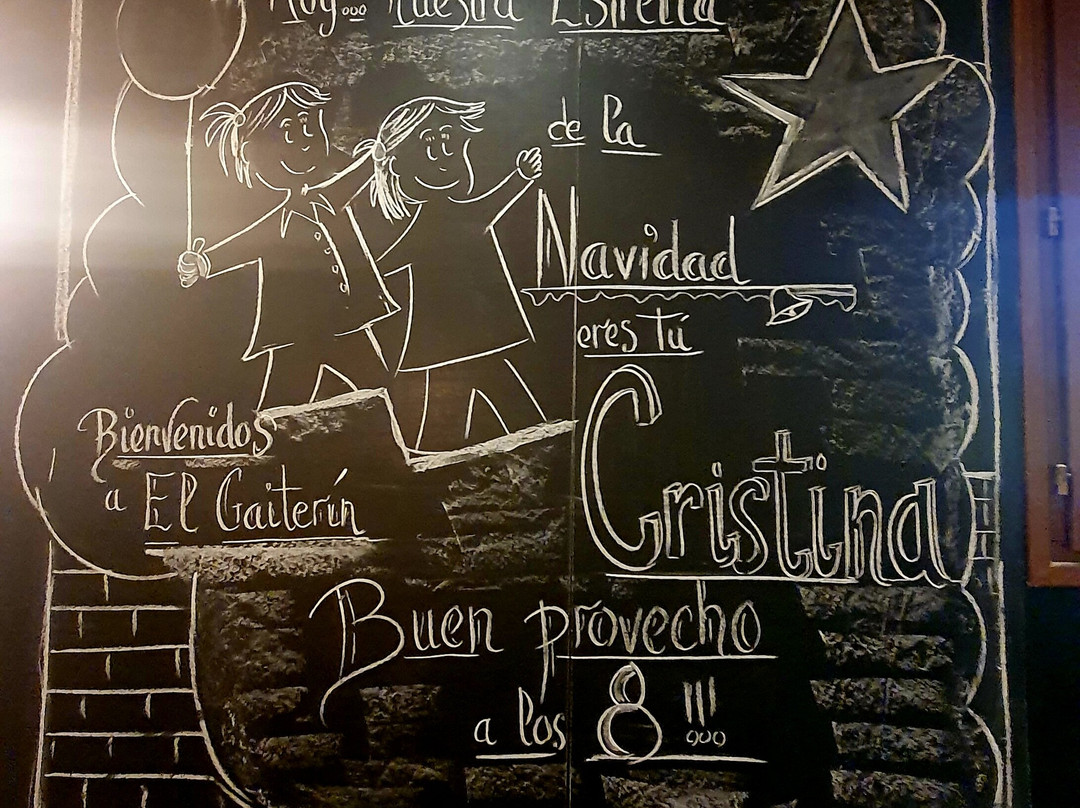 Hoy... nuestra Estrella
de la
Navidad
eres tú
Cristina
Bienvenidos
a El Gaiterín
Buen provecho
a los 8 !!!